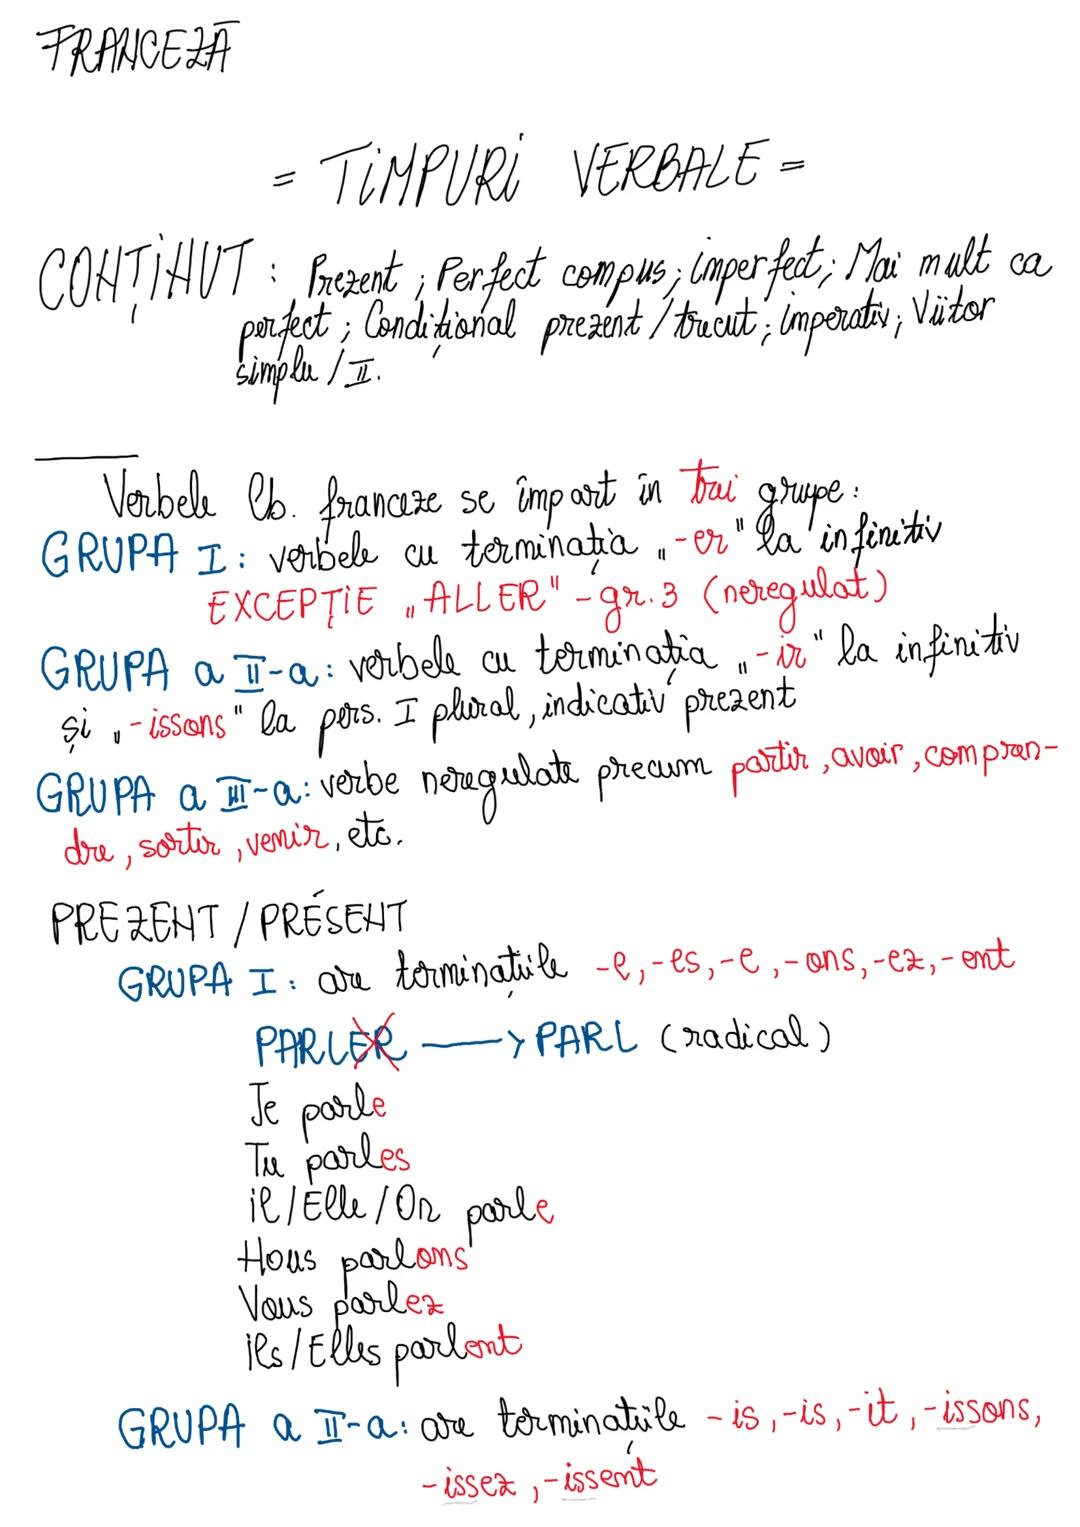 FRANCEZĂ
= TIMPURI VERBALE =
CONȚINUT : Prezent ; Perfect compus ; imperfect ; Mai mult ca
perfect ; Condițional prezent / trecut ; imperativ ; Viitor
simplu / II.
Verbele lb. franceze se împart în trei grupe :
GRUPA I : verbele cu terminația „-er" la infinitiv
EXCEPȚIE „ALLER" - gr. 3 (neregulat)
GRUPA a II-a : verbele cu terminația „-ir" la infinitiv
și „-issons" la pers. I plural, indicativ prezent
GRUPA a III-a : verbe neregulate precum partir, avoir, compren-
dre, sortir, venir, etc.
PREZENT / PRÉSENT
GRUPA I : are terminațiile -e, -es, -e, -ons, -ez, -ent
PARLER → PARL (radical)
Je parle
Tu parles
il / Elle / On parle
Nous parlons
Vous parlez
ils / Elles parlent
GRUPA a II-a : are terminațiile -is, -is, -it, -issons,
-issez, -issent